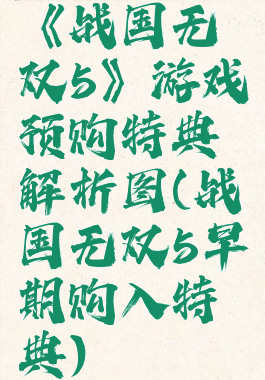 《战国无
双5》游戏
预购特典
解析图(战
国无双5早
期购入特
典)